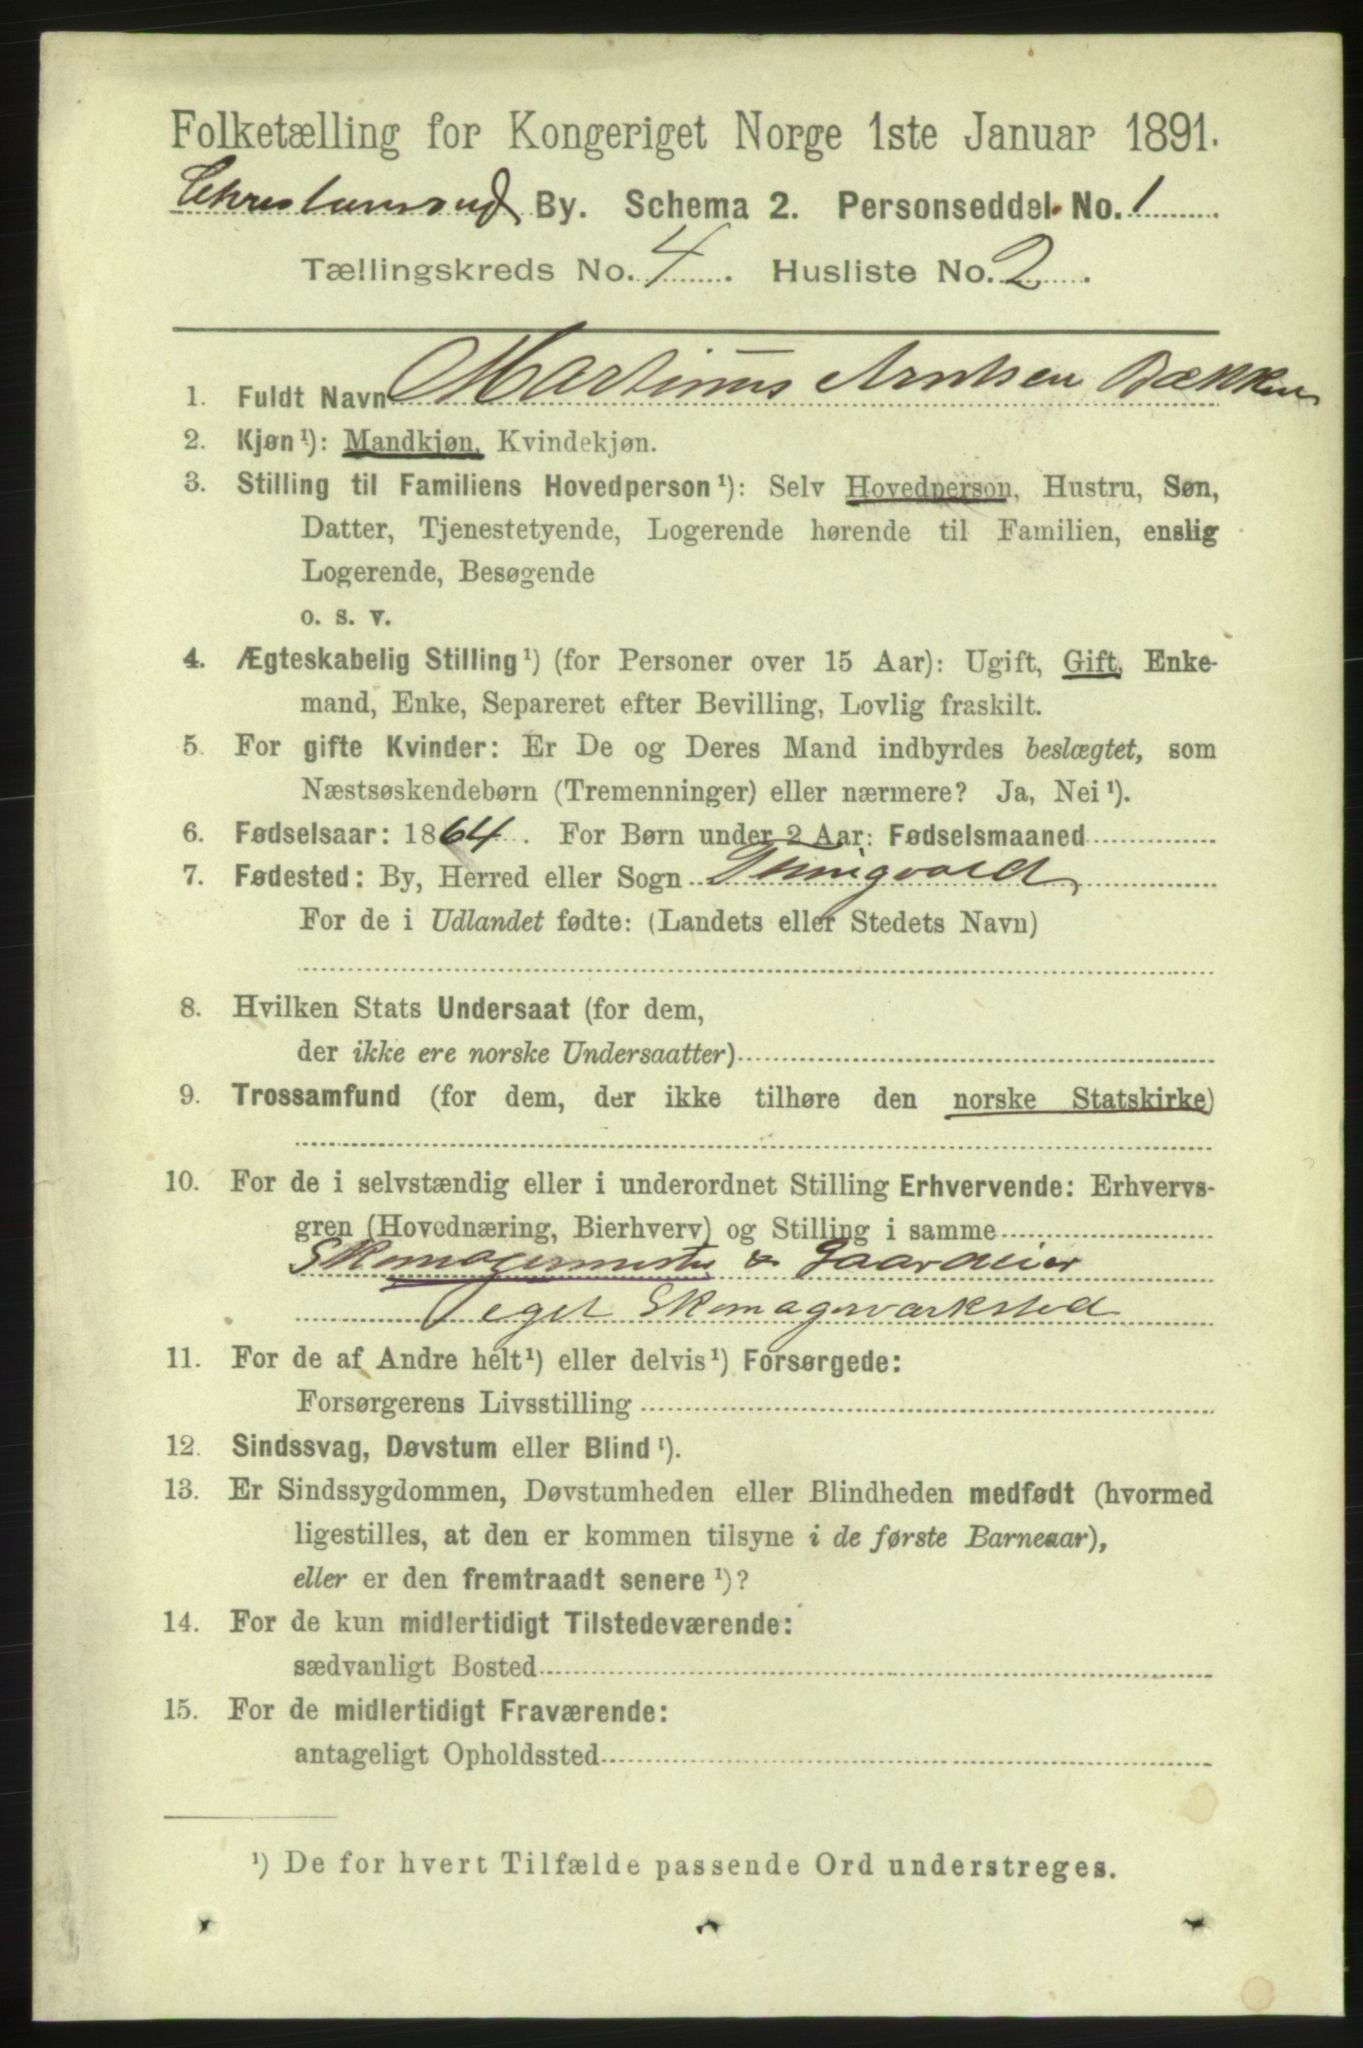 Folketælling for Kongeriget Norge 1ste Januar 1891.
Christiansund By. Schema 2. Personseddel No. 1
Tællingskreds No. 4. Husliste No. 2.
1. Fuldt Navn Martinus Arntsen Bækken
2. Kjøn¹): Mandkjøn, Kvindekjøn.
3. Stilling til Familiens Hovedperson¹): Selv Hovedperson, Hustru, Søn,
Datter, Tjenestetyende, Logerende hørende til Familien, enslig
Logerende, Besøgende
o. s. v.
4. Ægteskabelig Stilling¹) (for Personer over 15 Aar): Ugift, Gift, Enke-
mand, Enke, Separeret efter Bevilling, Lovlig fraskilt.
5. For gifte Kvinder: Er De og Deres Mand indbyrdes beslægtet, som
Næstsøskendebørn (Tremenninger) eller nærmere? Ja, Nei¹).
6. Fødselsaar: 1864. For Børn under 2 Aar: Fødselsmaaned
7. Fødested: By, Herred eller Sogn Thingvold
For de i Udlandet fødte: (Landets eller Stedets Navn)
8. Hvilken Stats Undersaat (for dem,
der ikke ere norske Undersaatter)
9. Trossamfund (for dem, der ikke tilhøre den norske Statskirke)
10. For de i selvstændig eller i underordnet Stilling Erhvervende: Erhvervs-
gren (Hovednæring, Bierhverv) og Stilling i samme
Skomagermester & Gaardeier
I eget Skomagerværksted
11. For de af Andre helt¹) eller delvis¹) Forsørgede:
Forsørgerens Livsstilling
12. Sindssvag, Døvstum eller Blind¹).
13. Er Sindssygdommen, Døvstumheden eller Blindheden medfødt (hvormed
ligestilles, at den er kommen tilsyne i de første Barneaar),
eller er den fremtraadt senere¹)?
14. For de kun midlertidigt Tilstedeværende:
sædvanligt Bosted
15. For de midlertidigt Fraværende:
antageligt Opholdssted
¹) De for hvert Tilfælde passende Ord understreges.